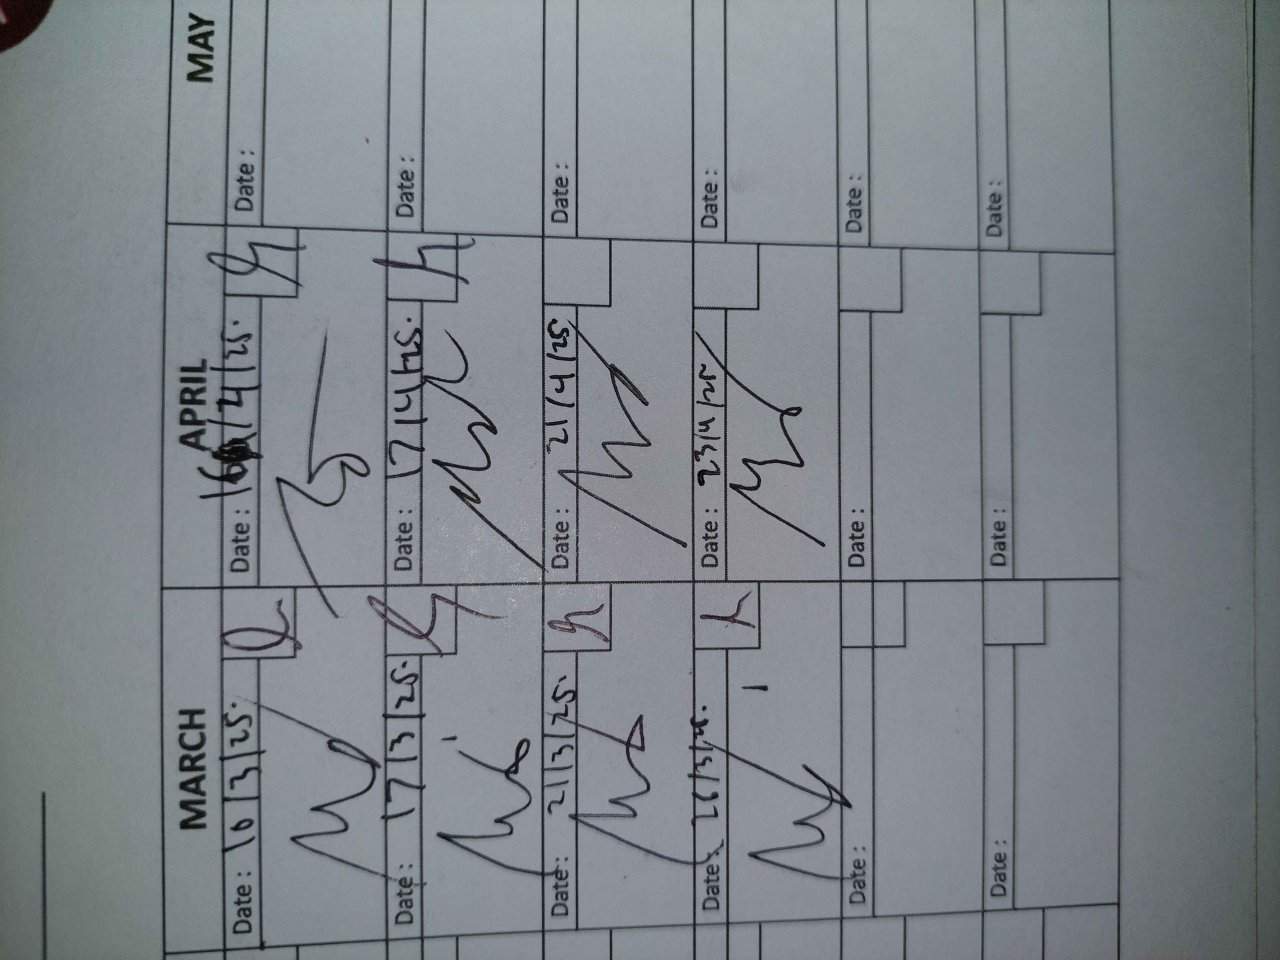 MARCH APRIL MAY
Date : 10/3/25. Date : 16/4/25. Date :
Date : 17/3/25. Date : 17/4/25. Date :
Date : 21/3/25. Date : 21/4/25 Date :
Date : 26/3/25. Date : 23/4/25 Date :
Date : Date : Date :
Date : Date : Date :